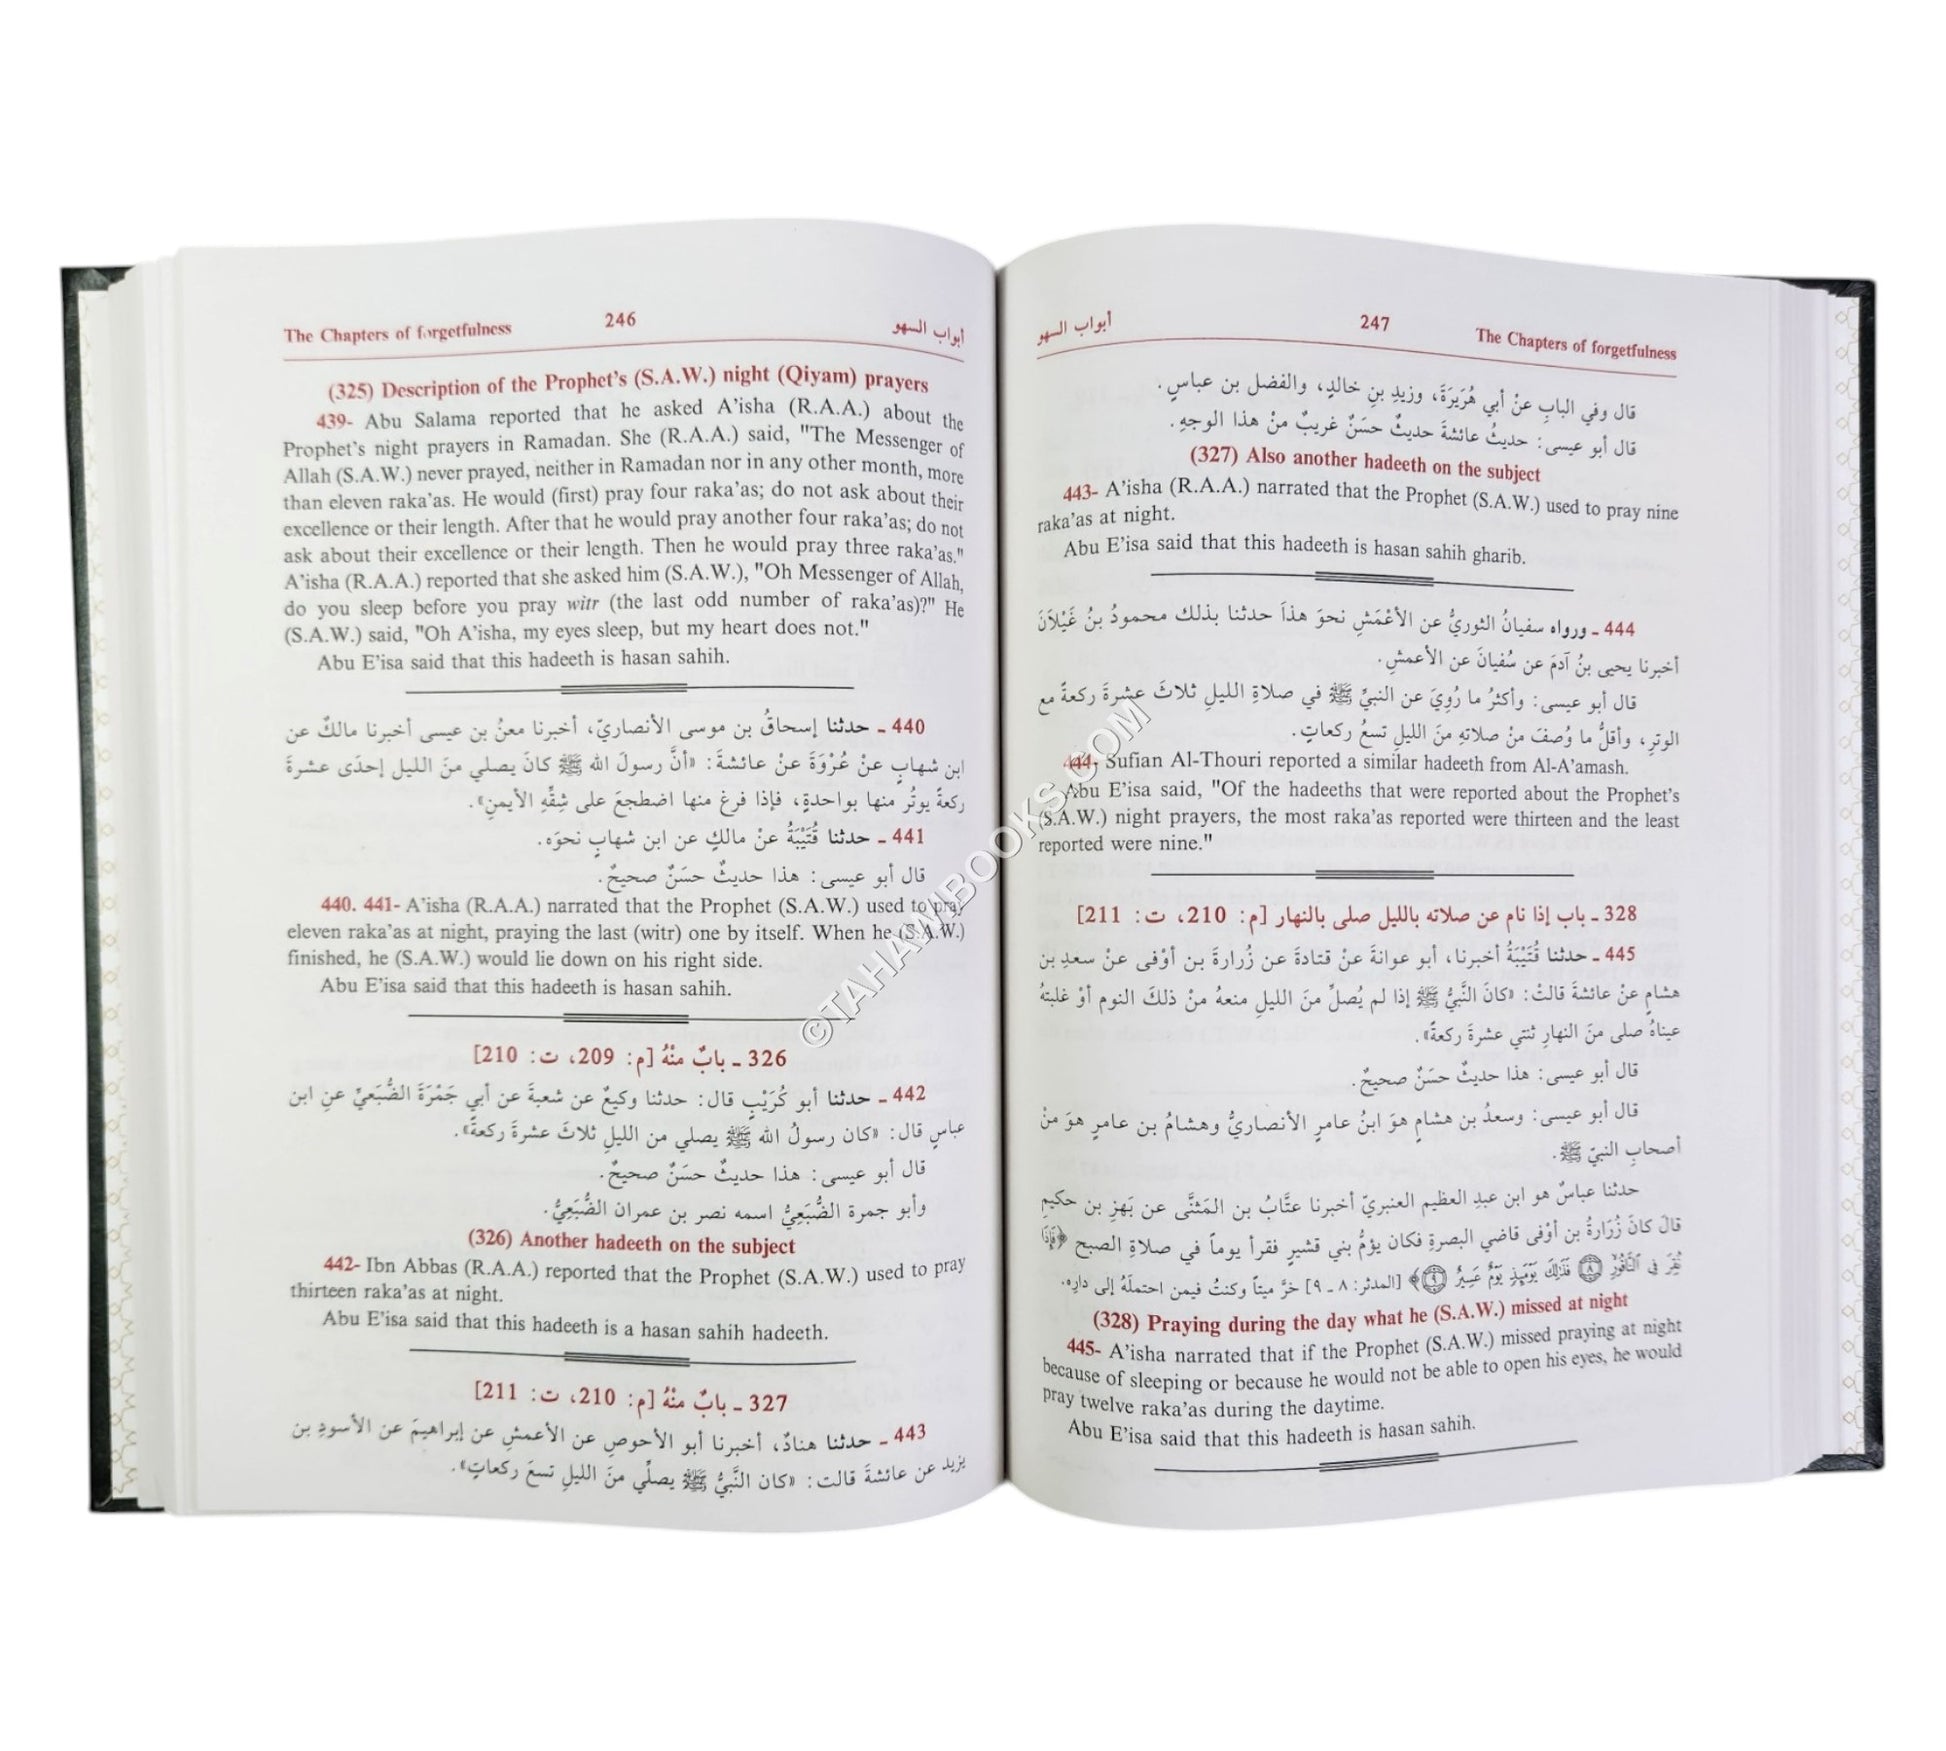 The Chapters of forgetfulness 246 أبواب السهو
(325) Description of the Prophet's (S.A.W.) night (Qiyam) prayers
439- Abu Salama reported that he asked A'isha (R.A.A.) about the
Prophet's night prayers in Ramadan. She (R.A.A.) said, "The Messenger of
Allah (S.A.W.) never prayed, neither in Ramadan nor in any other month, more
than eleven raka'as. He would (first) pray four raka'as; do not ask about their
excellence or their length. After that he would pray another four raka'as; do not
ask about their excellence or their length. Then he would pray three raka'as."
A'isha (R.A.A.) reported that she asked him (S.A.W.), "Oh Messenger of Allah,
do you sleep before you pray witr (the last odd number of raka'as)?" He
(S.A.W.) said, "Oh A'isha, my eyes sleep, but my heart does not."
Abu E'isa said that this hadeeth is hasan sahih.
440 ـ حدثنا إسحاقُ بن موسى الأنصاريّ، أخبرنا معنُ بن عيسى أخبرنا مالكٌ عن
ابن شهابٍ عنْ عُرْوَةَ عنْ عائشةَ: «أنَّ رسولَ الله ﷺ كانَ يصلي منَ الليل إحدَى عشرةَ
ركعةً يوتُر منها بواحدةٍ، فإذا فرغ منها اضطجعَ على شِقِّهِ الأيمنِ».
441 ـ حدثنا قُتَيْبَةُ عنْ مالكٍ عن ابن شهابٍ نحوَه.
قال أبو عيسى: هذا حديثٌ حسَنٌ صحيحٌ.
440. 441- A'isha (R.A.A.) narrated that the Prophet (S.A.W.) used to pray
eleven raka'as at night, praying the last (witr) one by itself. When he (S.A.W.)
finished, he (S.A.W.) would lie down on his right side.
Abu E'isa said that this hadeeth is hasan sahih.
326 ـ بابٌ منْهُ [م: 209، ت: 210]
442 ـ حدثنا أبو كُرَيْبٍ قال: حدثنا وكيعٌ عن شعبةَ عن أبي جَمْرَةَ الضُّبَعيِّ عنِ ابن
عباسٍ قال: «كان رسولُ الله ﷺ يصلي من الليلِ ثلاثَ عشرةَ ركعةً».
قال أبو عيسى: هذا حديثٌ حسَنٌ صحيحٌ.
وأبو جمرة الضُّبَعِيُّ اسمه نصر بن عمران الضُّبَعِيُّ.
(326) Another hadeeth on the subject
442- Ibn Abbas (R.A.A.) reported that the Prophet (S.A.W.) used to pray
thirteen raka'as at night.
Abu E'isa said that this hadeeth is a hasan sahih hadeeth.
327 ـ بابٌ منْهُ [م: 210، ت: 211]
443 ـ حدثنا هنادٌ، أخبرنا أبو الأحوصِ عن الأعمشِ عن إبراهيمَ عن الأسودِ بن
يزيد عن عائشةَ قالت: «كان النَّبيُّ ﷺ يصلِّي منَ الليلِ تسعَ ركعاتٍ».
أبواب السهو 247 The Chapters of forgetfulness
قال وفي البابِ عنْ أبي هُرَيَرَةَ، وزيدِ بنِ خالدٍ، والفضل بن عباسٍ.
قال أبو عيسى: حديثُ عائشةَ حديثٌ حسَنٌ غريبٌ منْ هذا الوجهِ.
(327) Also another hadeeth on the subject
443- A'isha (R.A.A.) narrated that the Prophet (S.A.W.) used to pray nine
raka'as at night.
Abu E'isa said that this hadeeth is hasan sahih gharib.
444 ـ ورواه سفيانُ الثوريُّ عن الأعْمَشِ نحوَ هذاَ حدثنا بذلك محمودُ بنُ غَيْلاَنَ
أخبرنا يحيى بنُ آدمَ عن سُفيانَ عن الأعمشِ.
قال أبو عيسى: وأكثرُ ما رُوِيَ عن النبيِّ ﷺ في صلاةِ الليلِ ثلاثَ عشرةَ ركعةً مع
الوترِ، وأقلُّ ما وُصفَ منْ صلاتهِ منَ الليلِ تسعُ ركعاتٍ.
444- Sufian Al-Thouri reported a similar hadeeth from Al-A'amash.
Abu E'isa said, "Of the hadeeths that were reported about the Prophet's
(S.A.W.) night prayers, the most raka'as reported were thirteen and the least
reported were nine."
328 ـ باب إذا نام عن صلاته بالليل صلى بالنهار [م: 210، ت: 211]
445 ـ حدثنا قُتَيْبَةُ أخبرنا، أبو عوانةَ عنْ قتادةَ عن زُرارةَ بن أوْفى عنْ سعدِ بن
هشامٍ عنْ عائشةَ قالتْ: «كانَ النَّبيُّ ﷺ إذا لم يُصلِّ منَ الليلِ منعهُ منْ ذلكَ النوم أوْ غلبتهُ
عيناهُ صلى منَ النهارِ ثنتي عشرةَ ركعةً».
قال أبو عيسى: هذا حديثٌ حسَنٌ صحيحٌ.
قال أبو عيسى: وسعدُ بن هشامٍ هوَ ابنُ عامرٍ الأنصاريُّ وهشامُ بن عامرٍ هوَ منْ
أصحابِ النبيّ ﷺ.
حدثنا عباسٌ هو ابن عبدِ العظيم العنبريّ أخبرنا عتَّابُ بن المَثنَّى عن بَهزِ بن حكيمٍ
قالَ كانَ زُرَارةُ بن أوْفى قاضي البصرةِ فكان يؤمُّ بني قشيرٍ فقرأ يوماً في صلاةِ الصبح ﴿فَإِذَا
نُقِرَ فِي النَّاقُورِ ۝٨ فَذَلِكَ يَوْمَئِذٍ يَوْمٌ عَسِيرٌ ۝٩﴾ [المدثر: ٨ ـ ٩] خرَّ ميتاً وكنتُ فيمن احتملَهُ إلى دارِه.
(328) Praying during the day what he (S.A.W.) missed at night
445- A'isha narrated that if the Prophet (S.A.W.) missed praying at night
because of sleeping or because he would not be able to open his eyes, he would
pray twelve raka'as during the daytime.
Abu E'isa said that this hadeeth is hasan sahih.
©TAHAMBOOKS.COM